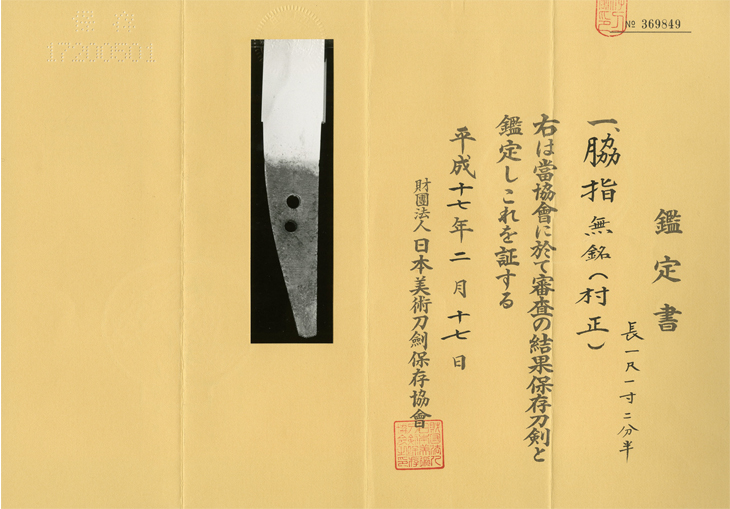 № 369849
鑑定書
長一尺一寸二分半
一、脇指 無銘(村正)
右は當協會に於て審査の結果保存刀剣と
鑑定しこれを証する
平成十七年二月十七日
財團法人 日本美術刀劍保存協會
17200501